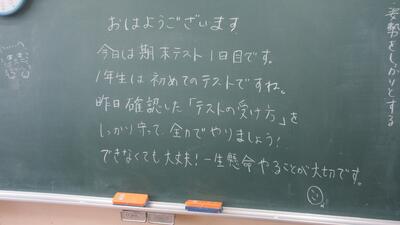 おはようございます
今日は期末テスト1日目です。
1年生は初めてのテストですね。
昨日確認した「テストの受け方」を
しっかり守って、全力でやりましょう!
できなくても大丈夫!一生懸命やることが大切です。
姿勢をしっかりとする